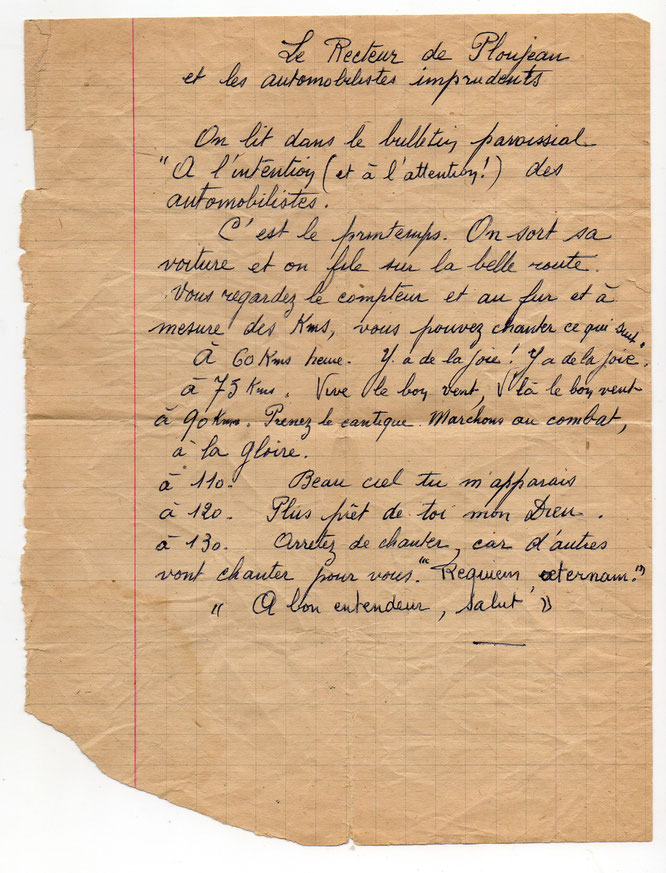 Le Recteur de Ploujean
et les automobilistes imprudents
On lit dans le bulletin paroissial
"A l'intention (et à l'attention!) des
automobilistes.
C'est le printemps. On sort sa
voiture et on file sur la belle route.
Vous regardez le compteur et au fur et à
mesure des Kms, vous pouvez chanter ce qui suit".
à 60 Kms heure. Y. a de la joie! Y a de la joie.
à 75 Kms. Vive le bon vent, V'là le bon vent
à 90 Kms. Prenez le cantique. Marchons au combat,
à la gloire.
à 110. Beau ciel tu m'apparais
à 120. Plus prêt de toi mon Dieu.
à 130. Arretez de chanter, car d'autres
vont chanter pour vous. "Requiem œternam."
" A bon entendeur, salut "